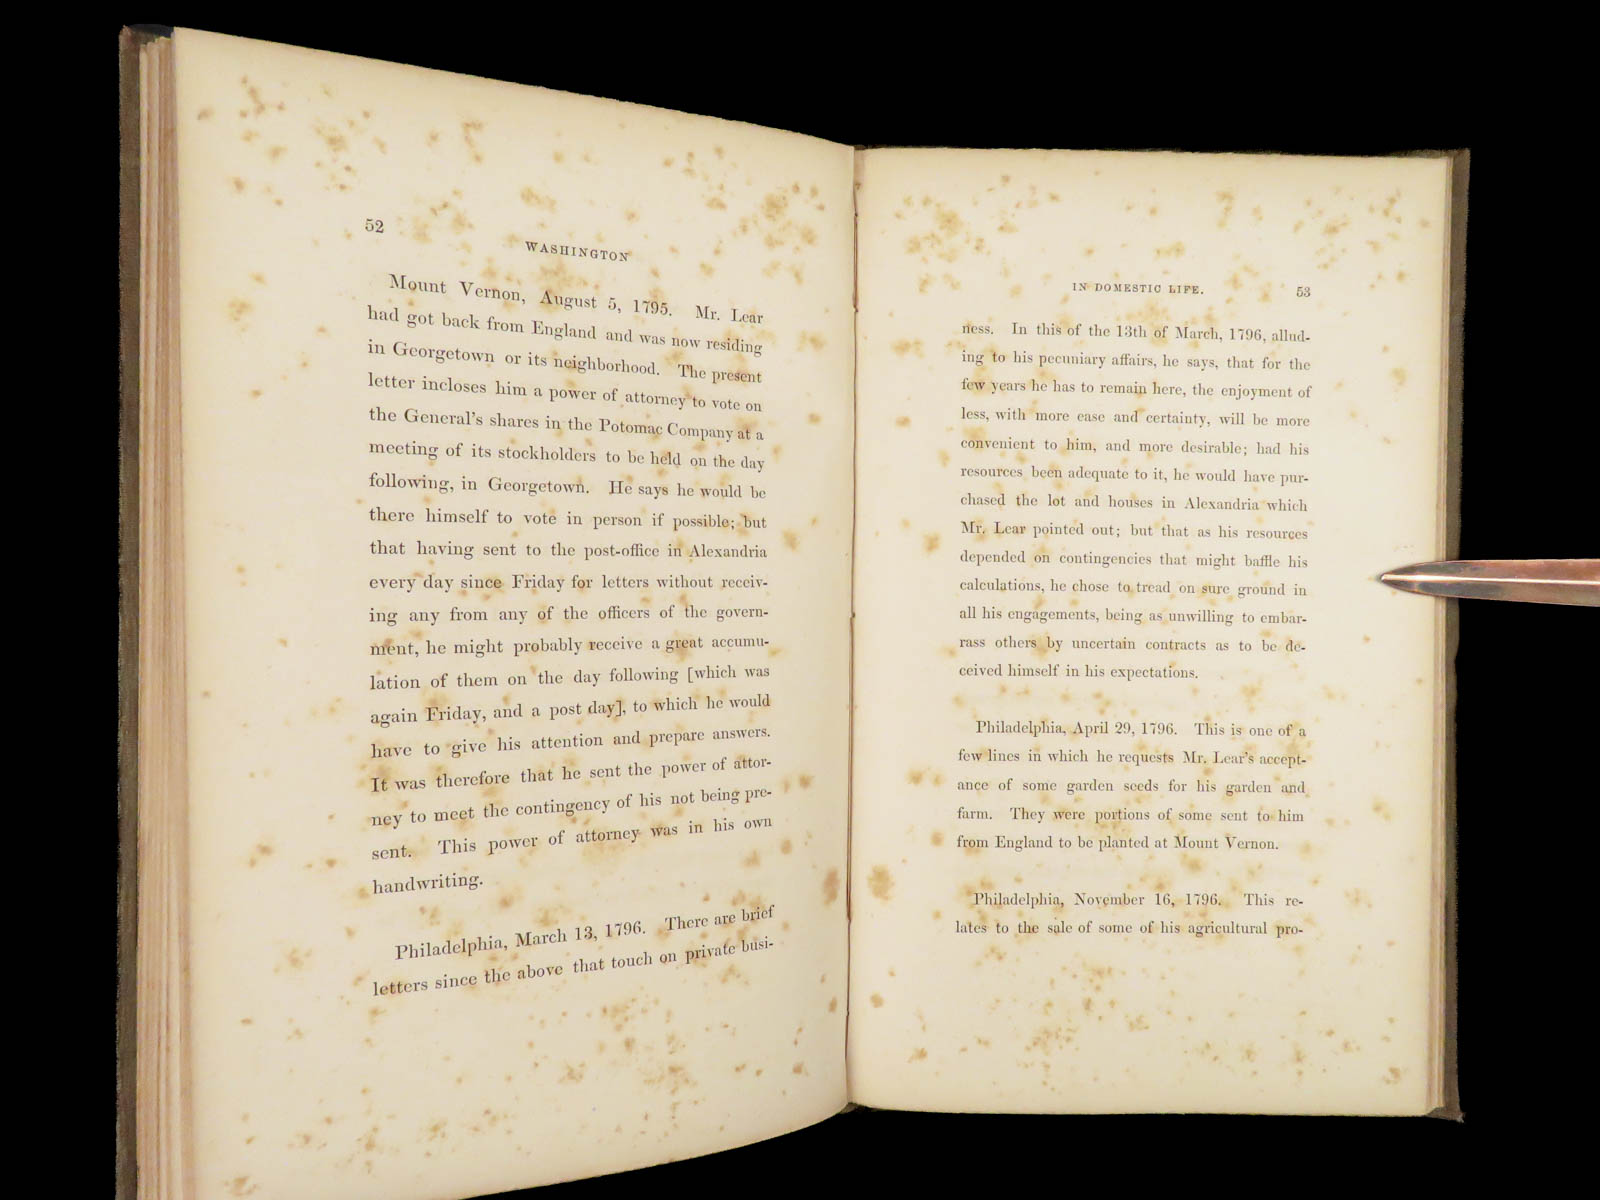 52
WASHINGTON
Mount Vernon, August 5, 1795. Mr. Lear
had got back from England and was now residing
in Georgetown or its neighborhood. The present
letter incloses him a power of attorney to vote on
the General's shares in the Potomac Company at a
meeting of its stockholders to be held on the day
following, in Georgetown. He says he would be
there himself to vote in person if possible; but
that having sent to the post-office in Alexandria
every day since Friday for letters without receiv-
ing any from any of the officers of the govern-
ment, he might probably receive a great accumu-
lation of them on the day following [which was
again Friday, and a post day], to which he would
have to give his attention and prepare answers.
It was therefore that he sent the power of attor-
ney to meet the contingency of his not being pre-
sent. This power of attorney was in his own
handwriting.
Philadelphia, March 13, 1796. There are brief
letters since the above that touch on private busi-
IN DOMESTIC LIFE.
53
ness. In this of the 13th of March, 1796, allud-
ing to his pecuniary affairs, he says, that for the
few years he has to remain here, the enjoyment of
less, with more ease and certainty, will be more
convenient to him, and more desirable; had his
resources been adequate to it, he would have pur-
chased the lot and houses in Alexandria which
Mr. Lear pointed out; but that as his resources
depended on contingencies that might baffle his
calculations, he chose to tread on sure ground in
all his engagements, being as unwilling to embar-
rass others by uncertain contracts as to be de-
ceived himself in his expectations.
Philadelphia, April 29, 1796. This is one of a
few lines in which he requests Mr. Lear's accept-
ance of some garden seeds for his garden and
farm. They were portions of some sent to him
from England to be planted at Mount Vernon.
Philadelphia, November 16, 1796. This re-
lates to the sale of some of his agricultural pro-